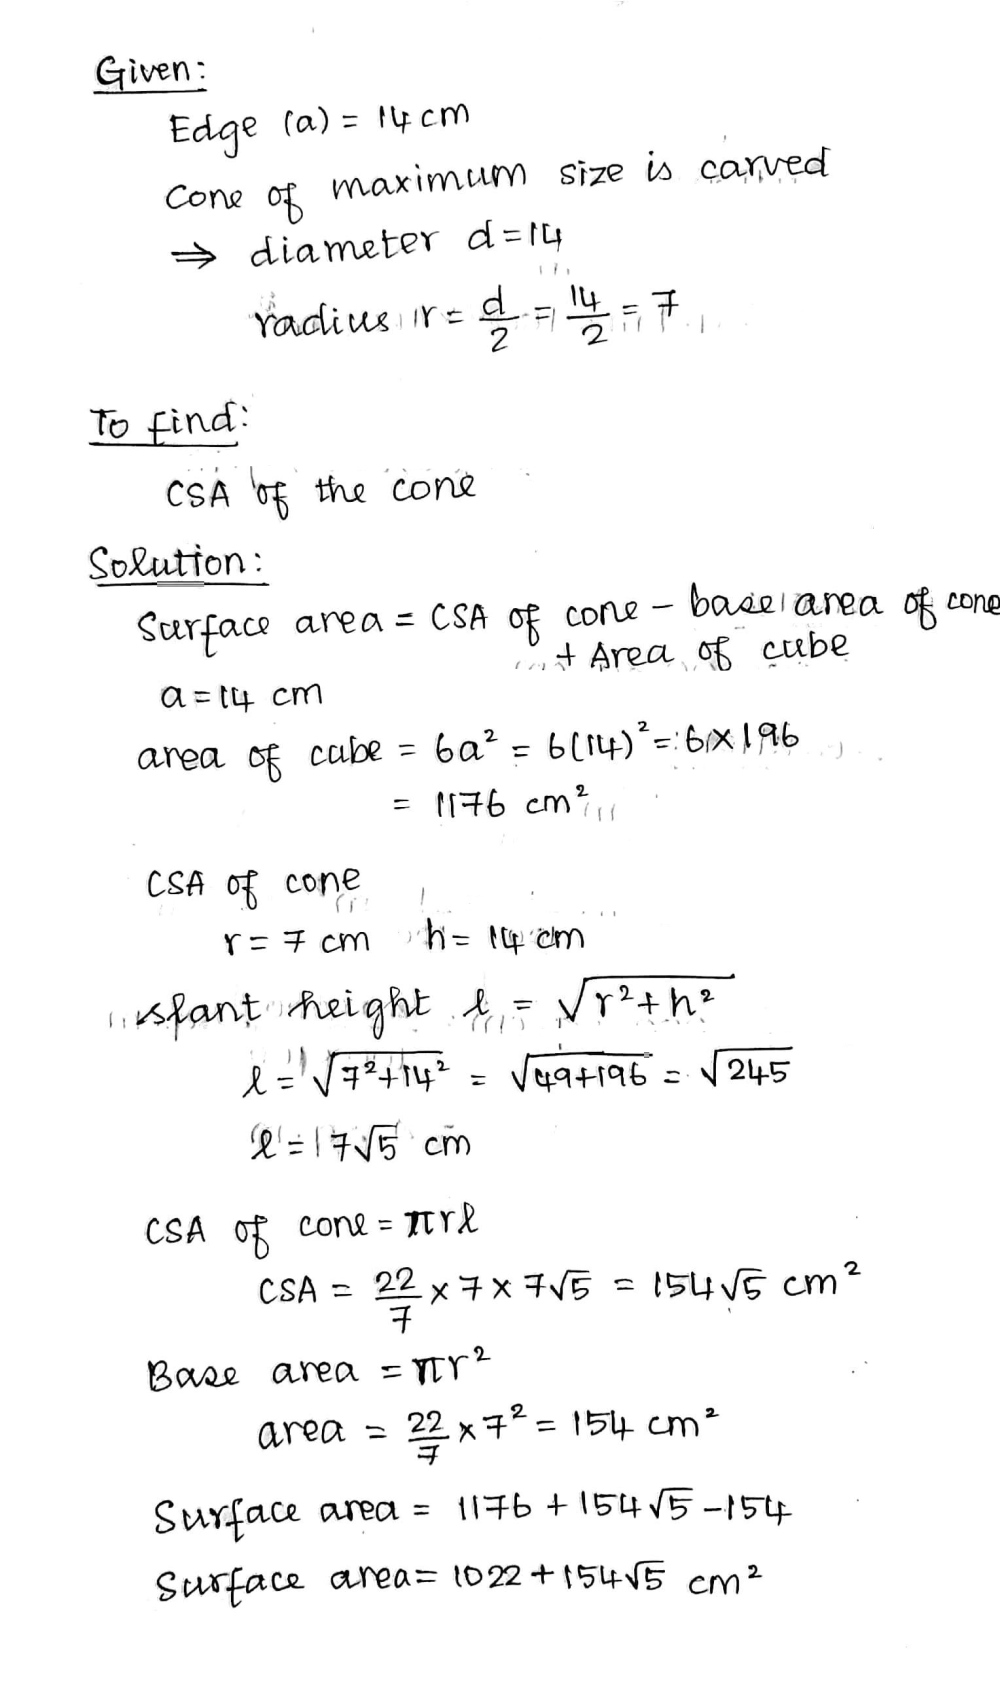 Given:
Edge (a) = 14 cm
Cone of maximum size is carved
⇒ diameter d=14
radius r = d/2 = 14/2 = 7
To find:
CSA of the cone
Solution:
Surface area = CSA of cone - base area of cone
+ Area of cube
a=14 cm
area of cube = 6a² = 6(14)² = 6×196
= 1176 cm²
CSA of cone
r = 7 cm h = 14 cm
slant height l = √r²+h²
l = √7²+14² = √49+196 = √245
l = 7√5 cm
CSA of cone = πrl
CSA = 22/7 × 7 × 7√5 = 154√5 cm²
Base area = πr²
area = 22/7 × 7² = 154 cm²
Surface area = 1176 + 154√5 - 154
Surface area = 1022 + 154√5 cm²